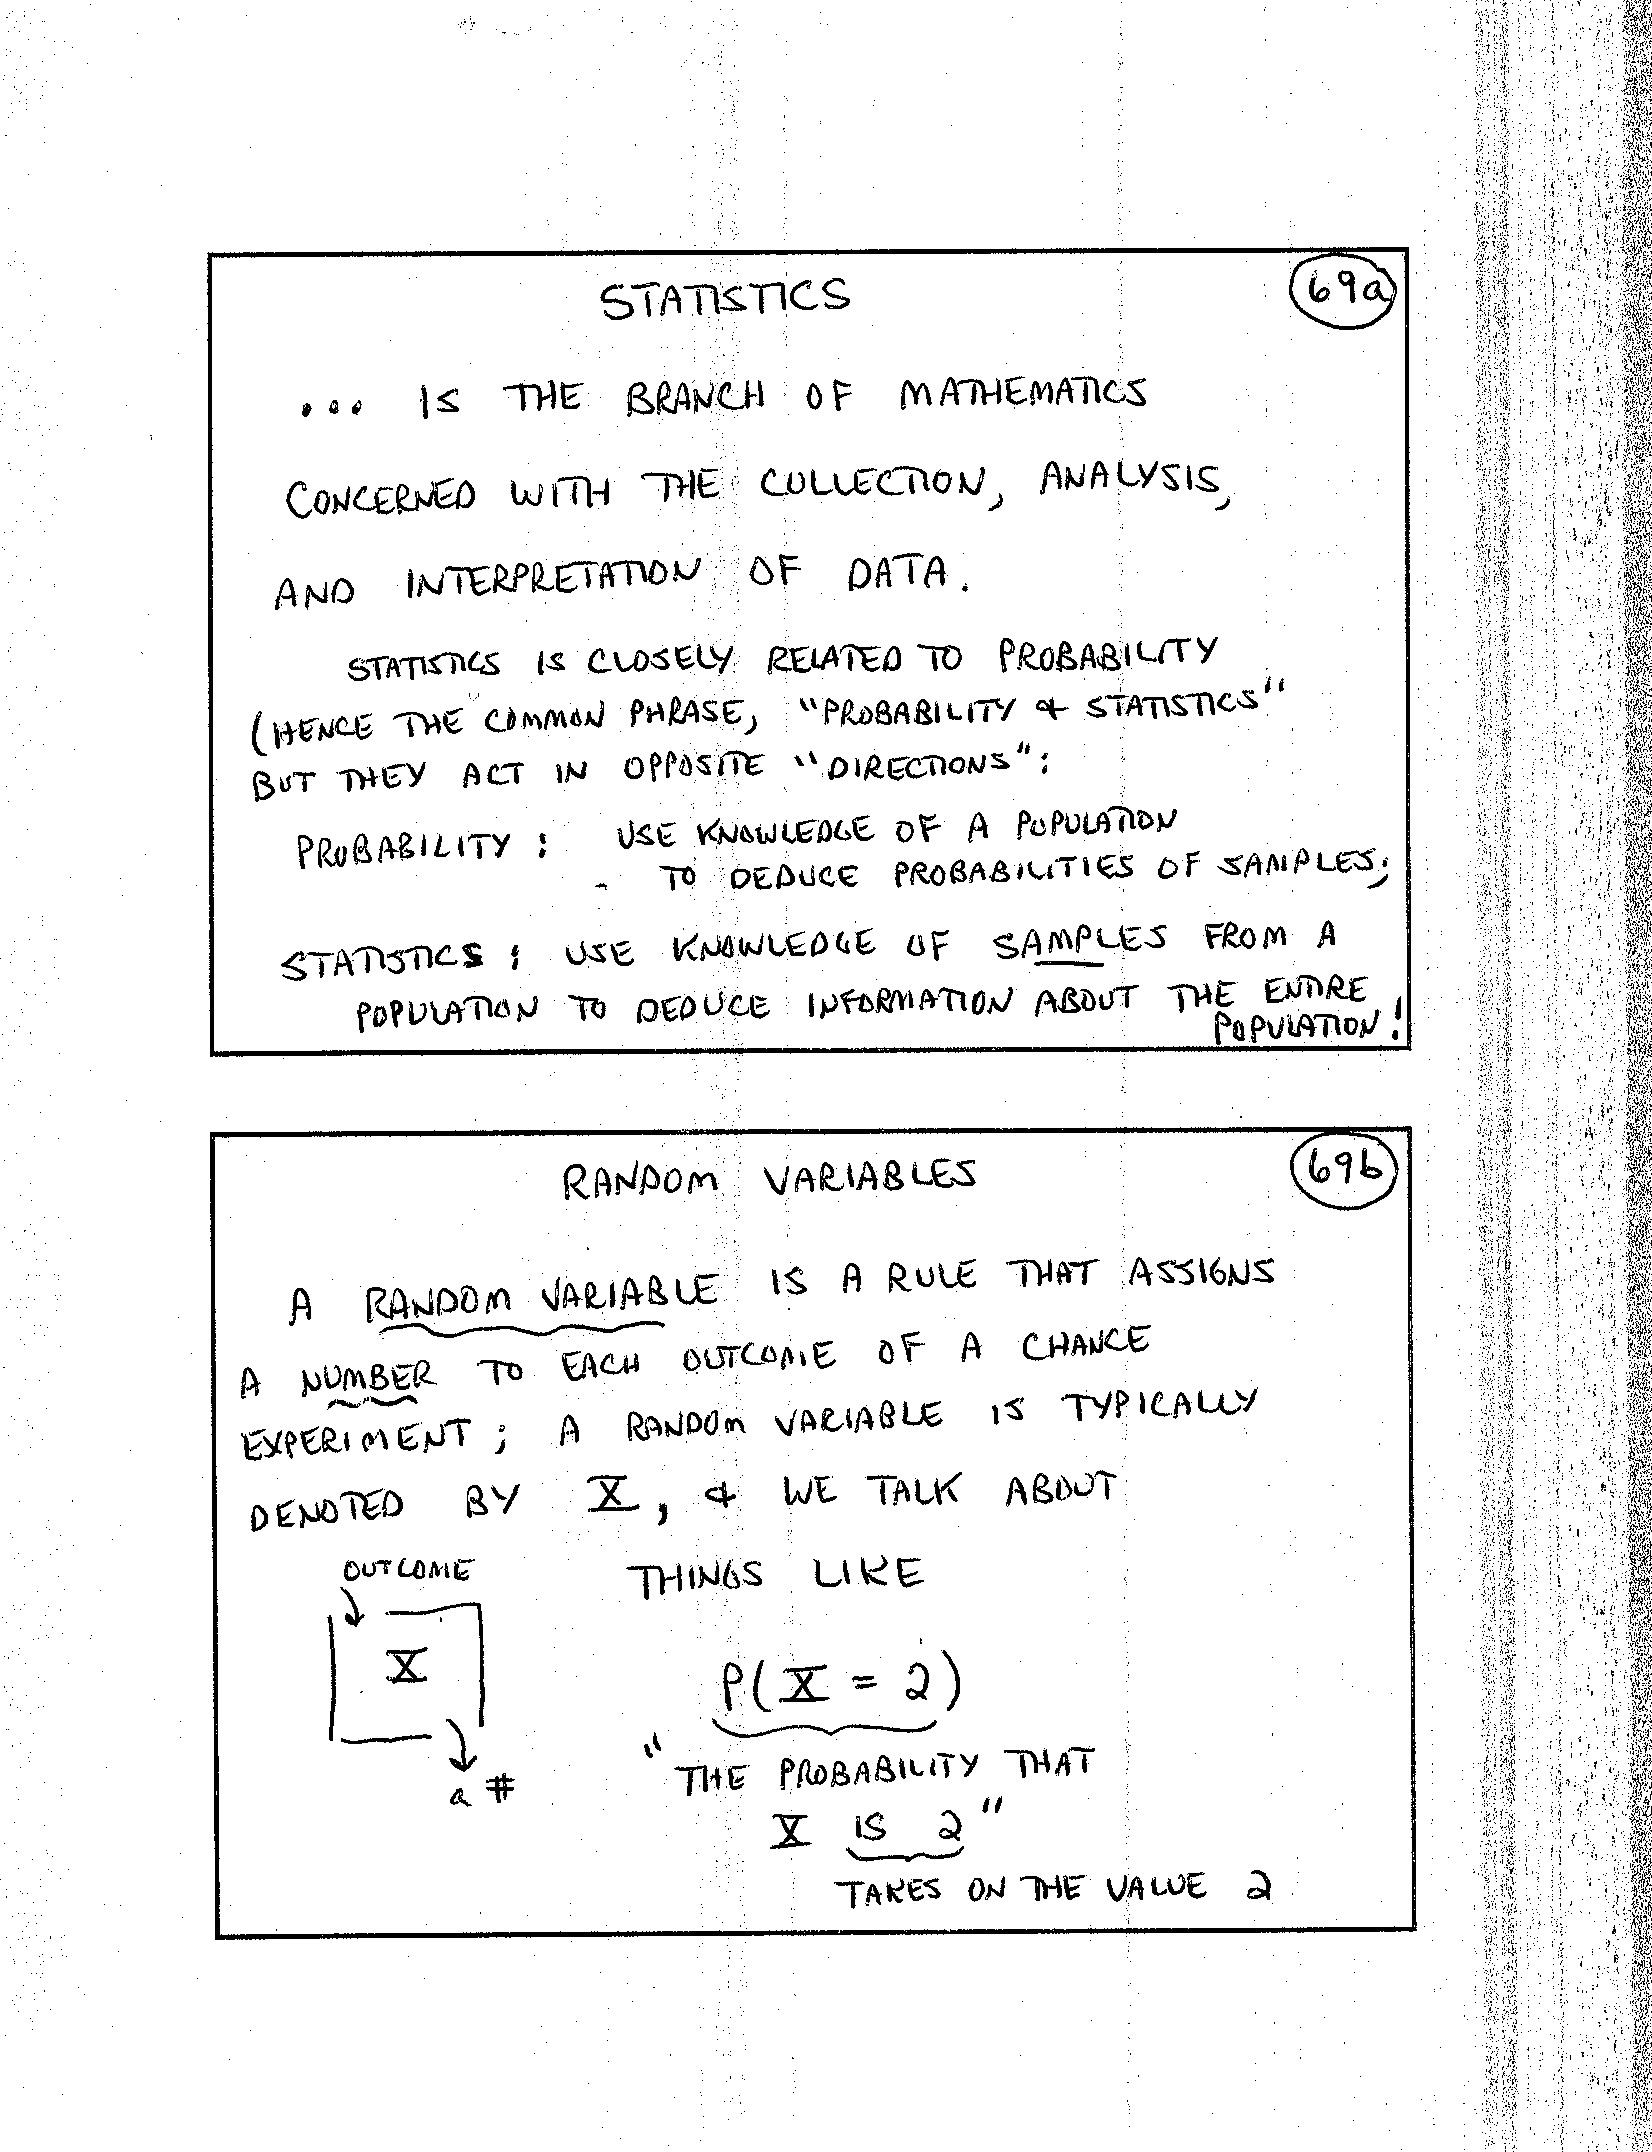 STATISTICS
69a
... IS THE BRANCH OF MATHEMATICS
CONCERNED WITH THE COLLECTION, ANALYSIS,
AND INTERPRETATION OF DATA.
STATISTICS IS CLOSELY RELATED TO PROBABILITY
(HENCE THE COMMON PHRASE, "PROBABILITY & STATISTICS"
BUT THEY ACT IN OPPOSITE "DIRECTIONS":
PROBABILITY: USE KNOWLEDGE OF A POPULATION
TO DEDUCE PROBABILITIES OF SAMPLES;
STATISTICS: USE KNOWLEDGE OF SAMPLES FROM A
POPULATION TO DEDUCE INFORMATION ABOUT THE ENTIRE
POPULATION!
RANDOM VARIABLES
69b
A RANDOM VARIABLE IS A RULE THAT ASSIGNS
A NUMBER TO EACH OUTCOME OF A CHANCE
EXPERIMENT; A RANDOM VARIABLE IS TYPICALLY
DENOTED BY X, & WE TALK ABOUT
THINGS LIKE
OUTCOME
X
a #
P(X = 2)
"THE PROBABILITY THAT
X IS 2"
TAKES ON THE VALUE 2